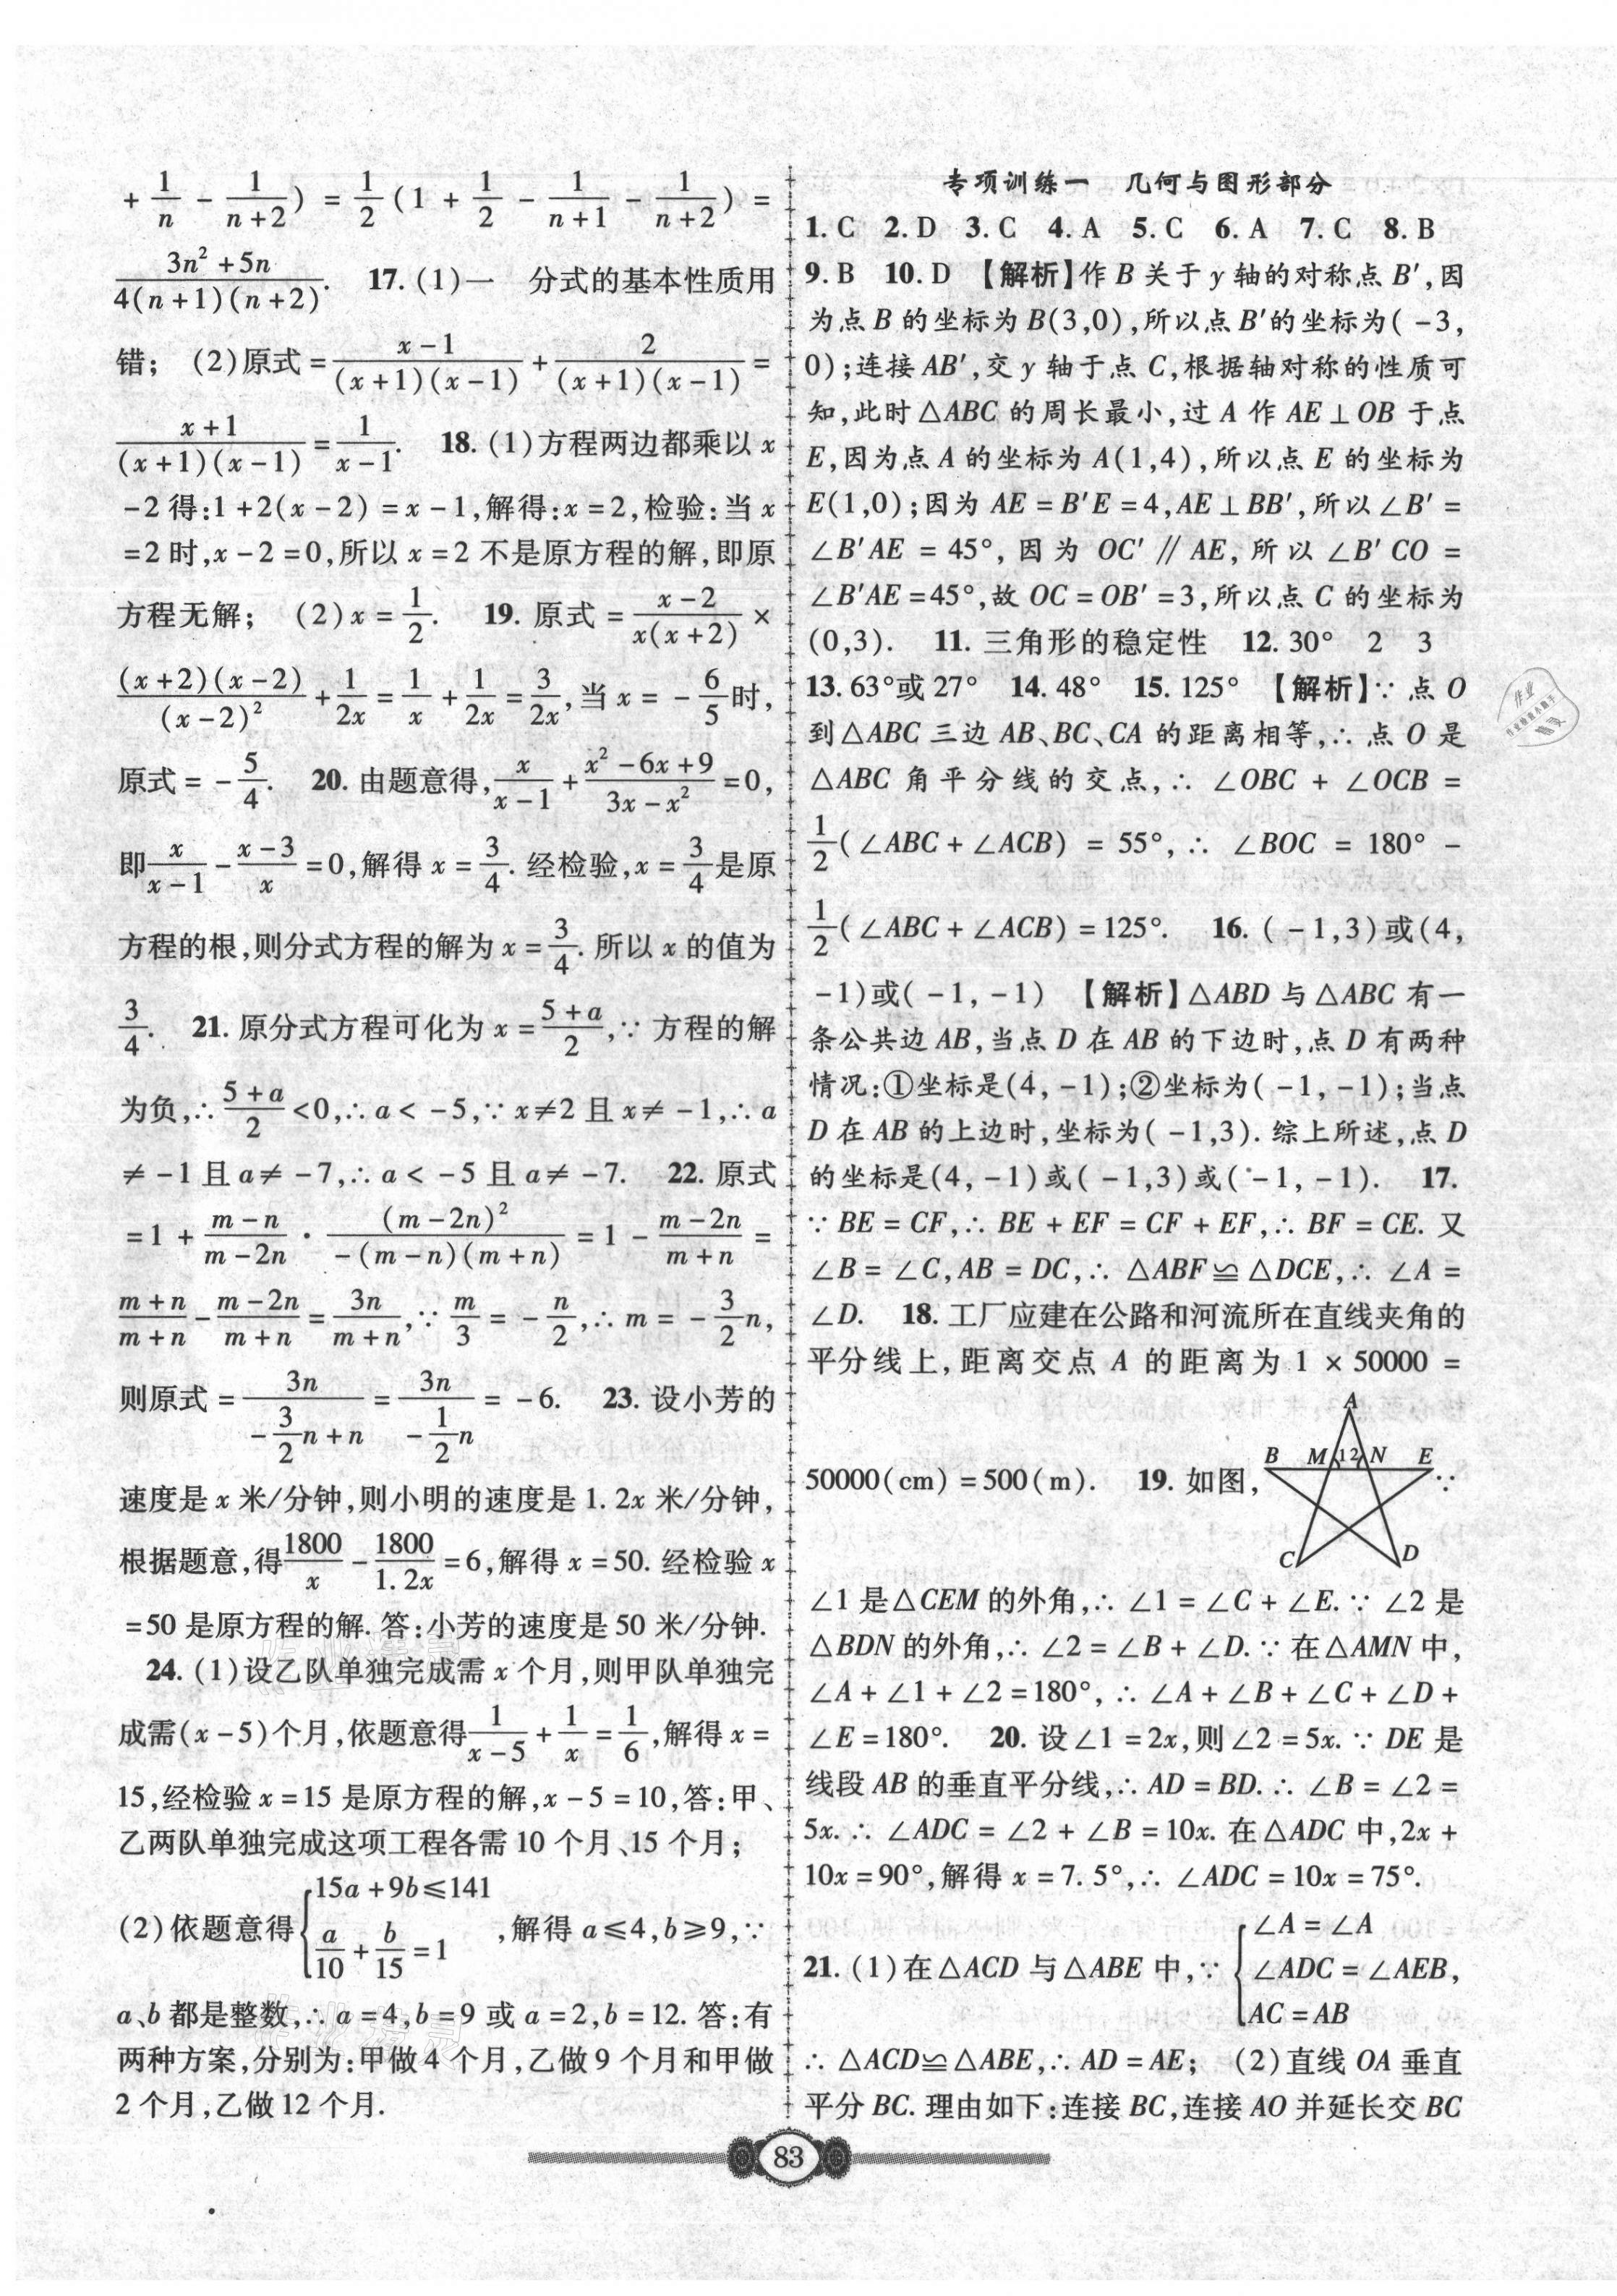 + 1/n - 1/(n+2)) = 1/2(1 + 1/2 - 1/(n+1) - 1/(n+2)) =
(3n²+5n)/(4(n+1)(n+2)). 17. (1)一 分式的基本性质用
错; (2)原式 = (x-1)/((x+1)(x-1)) + 2/((x+1)(x-1)) =
(x+1)/((x+1)(x-1)) = 1/(x-1). 18. (1)方程两边都乘以 x
-2 得:1+2(x-2) = x-1,解得:x=2,检验:当 x
=2 时,x-2=0,所以 x=2 不是原方程的解,即原
方程无解; (2)x = 1/2. 19. 原式 = (x-2)/(x(x+2)) ×
((x+2)(x-2))/((x-2)²) + 1/(2x) = 1/x + 1/(2x) = 3/(2x),当 x = -6/5时,
原式 = -5/4. 20. 由题意得,x/(x-1) + (x²-6x+9)/(3x-x²) =0,
即x/(x-1) - (x-3)/x =0,解得 x = 3/4. 经检验,x = 3/4是原
方程的根,则分式方程的解为 x = 3/4. 所以 x 的值为
3/4. 21. 原分式方程可化为 x = (5+a)/2,∵ 方程的解
为负,∴ (5+a)/2 <0,∴ a < -5,∵ x≠2 且 x≠ -1,∴ a
≠ -1 且 a≠ -7,∴ a < -5 且 a≠ -7. 22. 原式
=1 + (m-n)/(m-2n) · (m-2n)²/(-(m-n)(m+n)) = 1 - (m-2n)/(m+n) =
(m+n)/(m+n) - (m-2n)/(m+n) = 3n/(m+n),∵ m/3 = -n/2,∴ m = -3/2n,
则原式 = 3n/(-3/2n+n) = 3n/(-1/2n) = -6. 23. 设小芳的
速度是 x 米/分钟,则小明的速度是 1.2x 米/分钟,
根据题意,得1800/x - 1800/1.2x =6,解得 x=50. 经检验 x
=50 是原方程的解. 答:小芳的速度是 50 米/分钟.
24. (1)设乙队单独完成需 x 个月,则甲队单独完
成需(x-5)个月,依题意得1/(x-5) + 1/x = 1/6,解得 x =
15,经检验 x=15 是原方程的解,x-5=10,答:甲、
乙两队单独完成这项工程各需 10 个月、15 个月;
(2)依题意得{15a+9b≤141 a/10 + b/15 =1 ,解得 a≤4,b≥9,∵
a、b 都是整数,∴ a=4,b=9 或 a=2,b=12. 答:有
两种方案,分别为:甲做 4 个月,乙做 9 个月和甲做
2 个月,乙做 12 个月.
专项训练一 几何与图形部分
1. C 2. D 3. C 4. A 5. C 6. A 7. C 8. B
9. B 10. D 【解析】作 B 关于 y 轴的对称点 B′,因
为点 B 的坐标为 B(3,0),所以点 B′的坐标为(-3,
0);连接 AB′,交 y 轴于点 C,根据轴对称的性质可
知,此时△ABC 的周长最小,过 A 作 AE⊥OB 于点
E,因为点 A 的坐标为 A(1,4),所以点 E 的坐标为
E(1,0);因为 AE = B′E = 4,AE⊥BB′,所以∠B′ =
∠B′AE = 45°, 因为 OC′ ∥ AE, 所以 ∠B′CO =
∠B′AE=45°,故 OC=OB′=3,所以点 C 的坐标为
(0,3). 11. 三角形的稳定性 12. 30° 2 3
13. 63°或 27° 14. 48° 15. 125° 【解析】∵ 点 O
到△ABC 三边 AB、BC、CA 的距离相等,∴ 点 O 是
△ABC 角平分线的交点,∴ ∠OBC + ∠OCB =
1/2(∠ABC+∠ACB) = 55°,∴ ∠BOC = 180° -
1/2(∠ABC+∠ACB) = 125°. 16. (-1,3)或(4,
-1)或(-1,-1) 【解析】△ABD 与△ABC 有一
条公共边 AB,当点 D 在 AB 的下边时,点 D 有两种
情况:①坐标是(4,-1);②坐标为(-1,-1);当点
D 在 AB 的上边时,坐标为(-1,3). 综上所述,点 D
的坐标是(4,-1)或(-1,3)或(-1,-1). 17.
∵ BE=CF,∴ BE+EF=CF+EF,∴ BF=CE. 又
∠B=∠C,AB=DC,∴ △ABF≌△DCE,∴ ∠A=
∠D. 18. 工厂应建在公路和河流所在直线夹角的
平分线上,距离交点 A 的距离为 1 × 50000 =
50000(cm) = 500(m). 19. 如图, A B M 1 2 N E C D ∵
∠1 是△CEM 的外角,∴ ∠1=∠C+∠E. ∵ ∠2 是
△BDN 的外角,∴ ∠2=∠B+∠D. ∵ 在△AMN 中,
∠A+∠1+∠2=180°,∴ ∠A+∠B+∠C+∠D+
∠E=180°. 20. 设∠1=2x,则∠2=5x. ∵ DE 是
线段 AB 的垂直平分线,∴ AD=BD. ∴ ∠B=∠2=
5x. ∴ ∠ADC=∠2+∠B=10x. 在△ADC 中,2x+
10x=90°,解得 x=7.5°,∴ ∠ADC=10x=75°.
21. (1)在△ACD 与△ABE 中,∵ {∠A=∠A ∠ADC=∠AEB, AC=AB
∴ △ACD≌△ABE,∴ AD=AE; (2)直线 OA 垂直
平分 BC. 理由如下:连接 BC,连接 AO 并延长交 BC
83